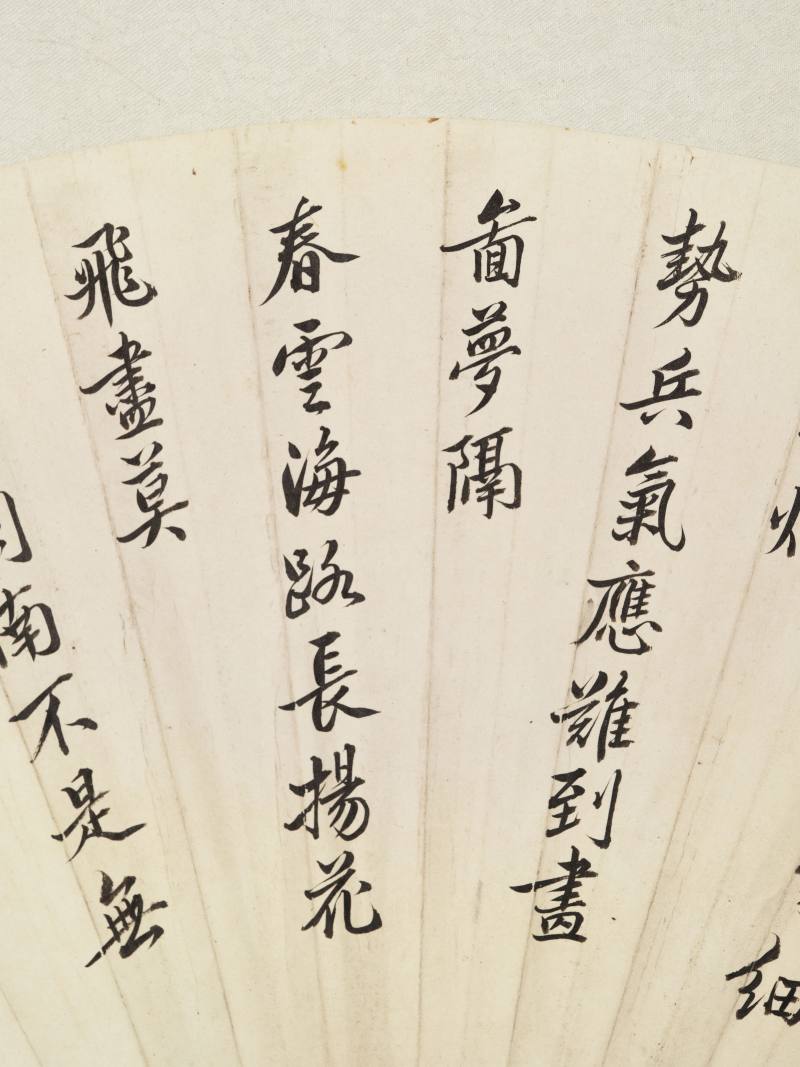 細
勢兵氣應難到畫
啚夢隔
春雲海路長揚花
飛盡莫
南不是無